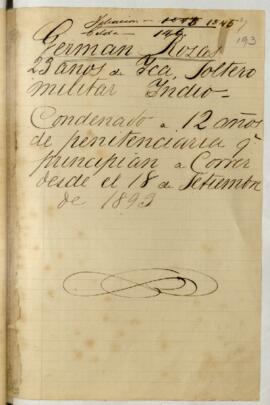 Filiacion - 1245
Celda - 199
193
German Rozas
23 años de Ica, Soltero
militar Indio -
Condenado a 12 años
de penitenciaria q'
principian a Correr
desde el 18 de Setiembre
de 1893